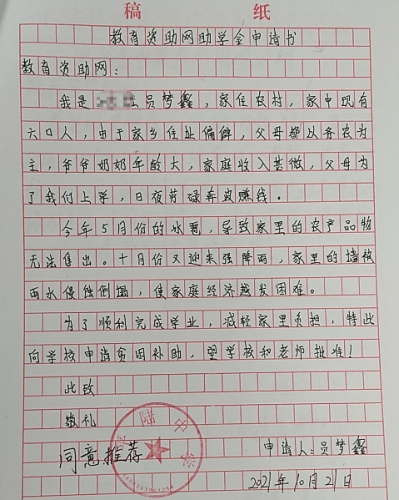 稿 纸
教育资助网助学金申请书
教育资助网：
我是 员梦鑫，家住农村，家中现有
六口人，由于家乡住址偏僻，父母都以务农为
主，爷爷奶奶年龄大，家庭收入甚微，父母为
了我们上学，日夜劳碌奔波赚钱。
今年5月份的水雹，导致家里的农产品物
无法售出。十月份又迎来强降雨，家里的墙被
雨水侵蚀倒塌，使家庭经济越发困难。
为了顺利完成学业，减轻家里负担，特此
向学校申请贫困补助，望学校和老师批准！
此致
敬礼
同意推荐
申请人：员梦鑫
2021年10月21日